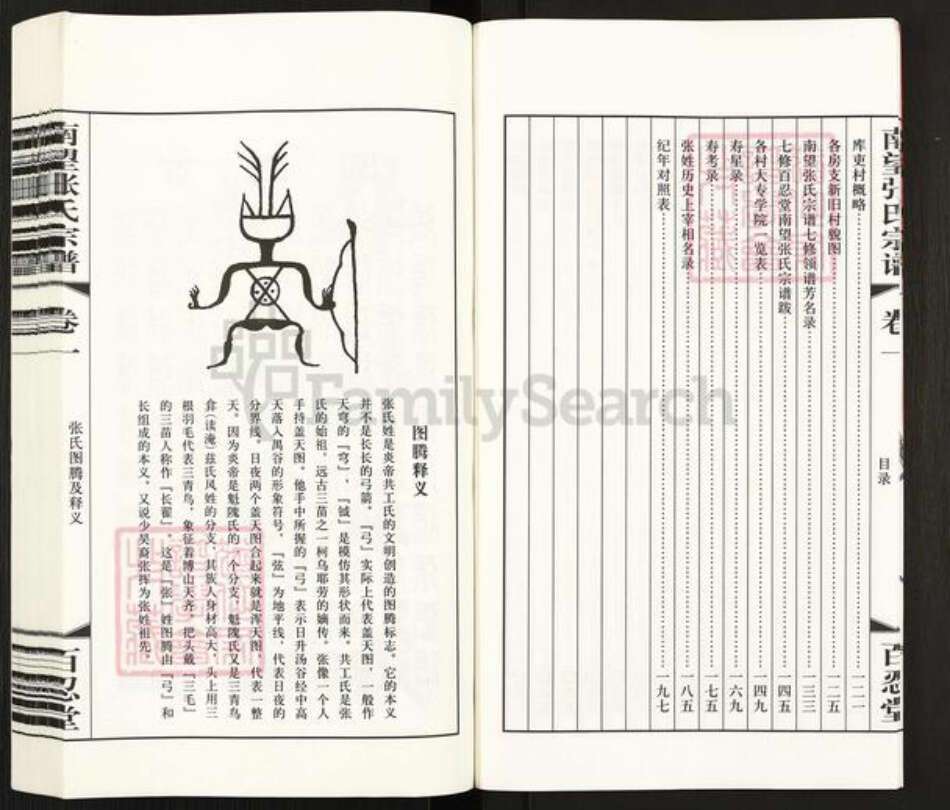 南望张氏宗谱
卷一
目录
百忍堂
库吏村概略 一二一
各房支新旧村貌图 一二五
南望张氏宗谱七修领谱芳名录 一三三
七修百忍堂南望张氏宗谱跋 一四五
各村大专学院一览表 一四九
寿星录 一六九
寿考录 一七五
张姓历史上宰相名录 一八五
纪年对照表 一九七
图腾释义
张氏姓是炎帝共工氏的文明创造的图腾标志。它的本义
并不是长长的弓箭，『弓』实际上代表盖天图，一般作
天穹的『穹』，『钺』是模仿其形状而来。共工氏是张
氏的始祖，远古三苗之一柯乌耶劳的嫡传。张像一个人
手持盖天图，他手中所握的『弓』表示日升汤谷经中高
天落入禺谷的形象符号，『弦』为地平线，代表日夜的
分界线。日夜两个盖天图合起来就是浑天图，代表一整
天。因为炎帝是魁隗氏的一个分支，魁隗氏又是三青鸟
弇（读淹）兹氏风姓的分支，其族人身材高大，头上用三
根羽毛代表三青鸟，象征着博山天齐，把头戴『三毛』
的三苗人称作『长翟』，这是『张』姓图腾由『弓』和
长组成的本义，又说少昊裔张挥为张姓祖先。
南望张氏宗谱
卷一
张氏图腾及释义
百忍堂
FamilySearch